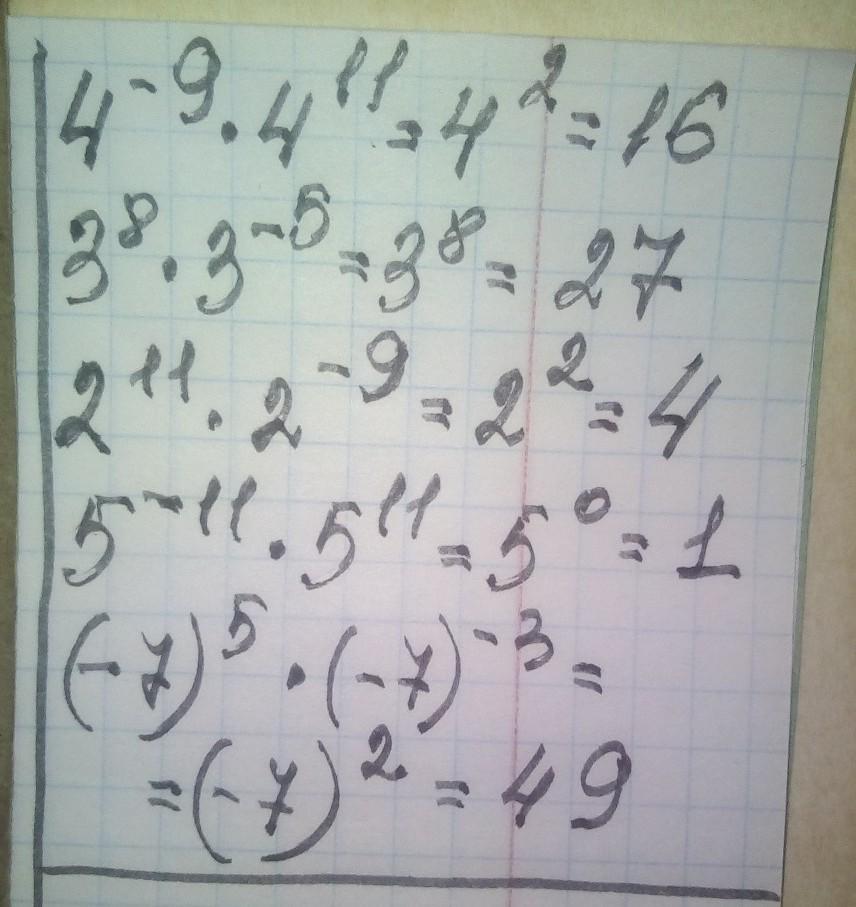 4⁻⁹ · 4¹¹ = 4² = 16
3⁸ · 3⁻⁵ = 3⁸ = 27
2¹¹ · 2⁻⁹ = 2² = 4
5⁻¹¹ · 5¹¹ = 5⁰ = 1
(-7)⁵ · (-7)⁻³ =
= (-7)² = 49